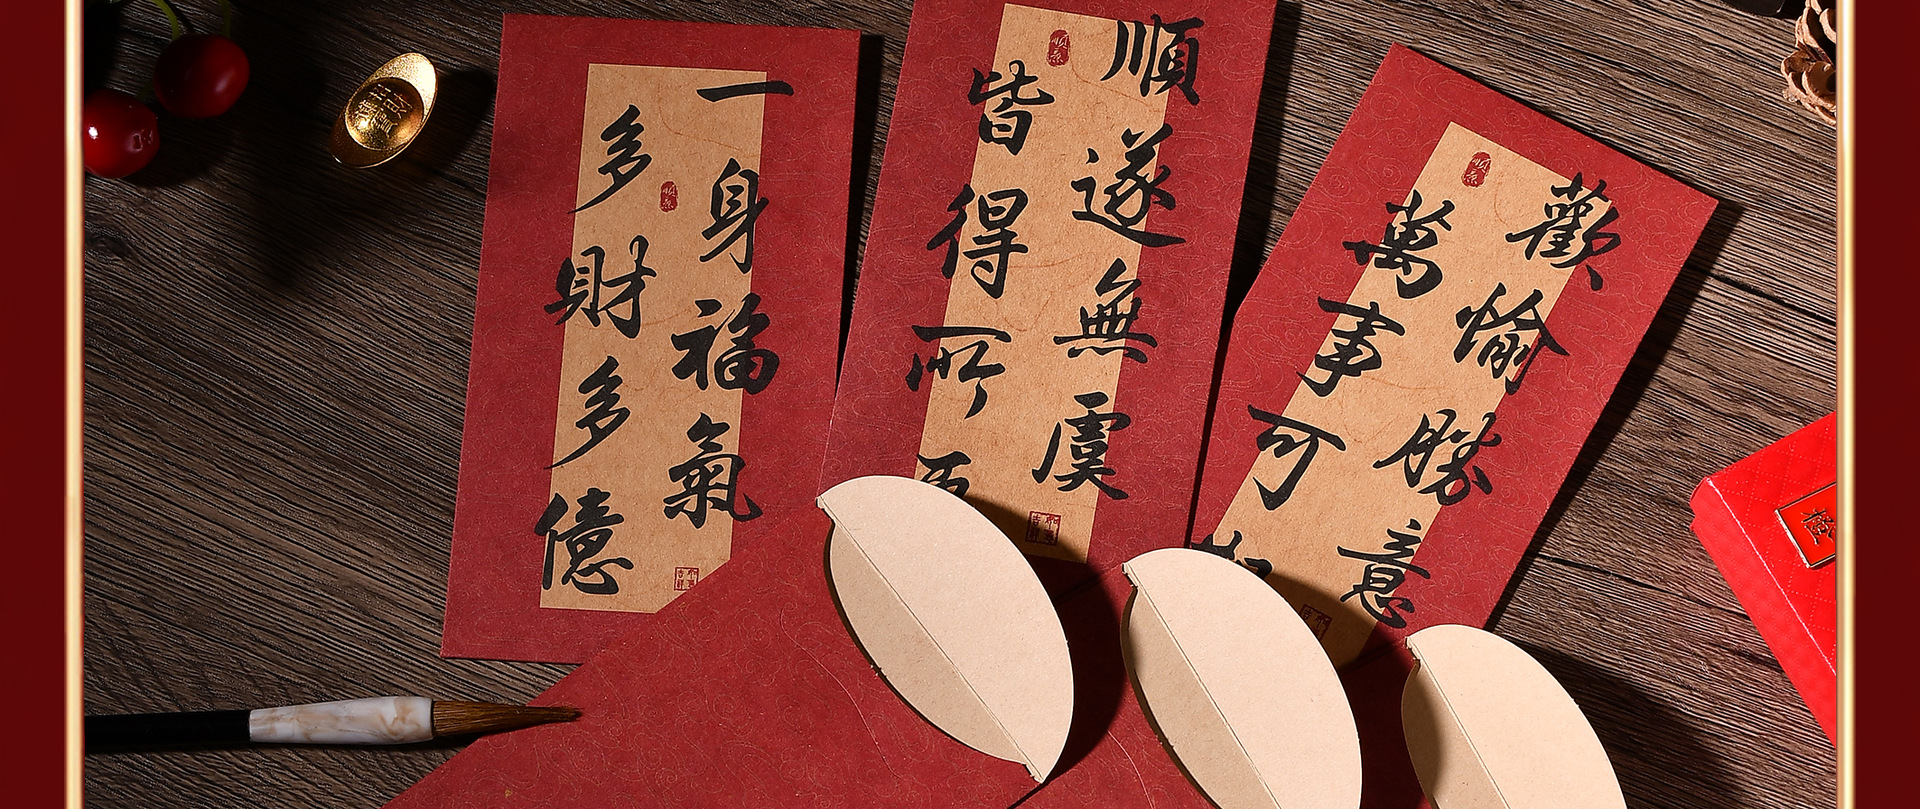 一身福氣
多財多億
順遂無虞
皆得所
歡愉勝意
萬事可